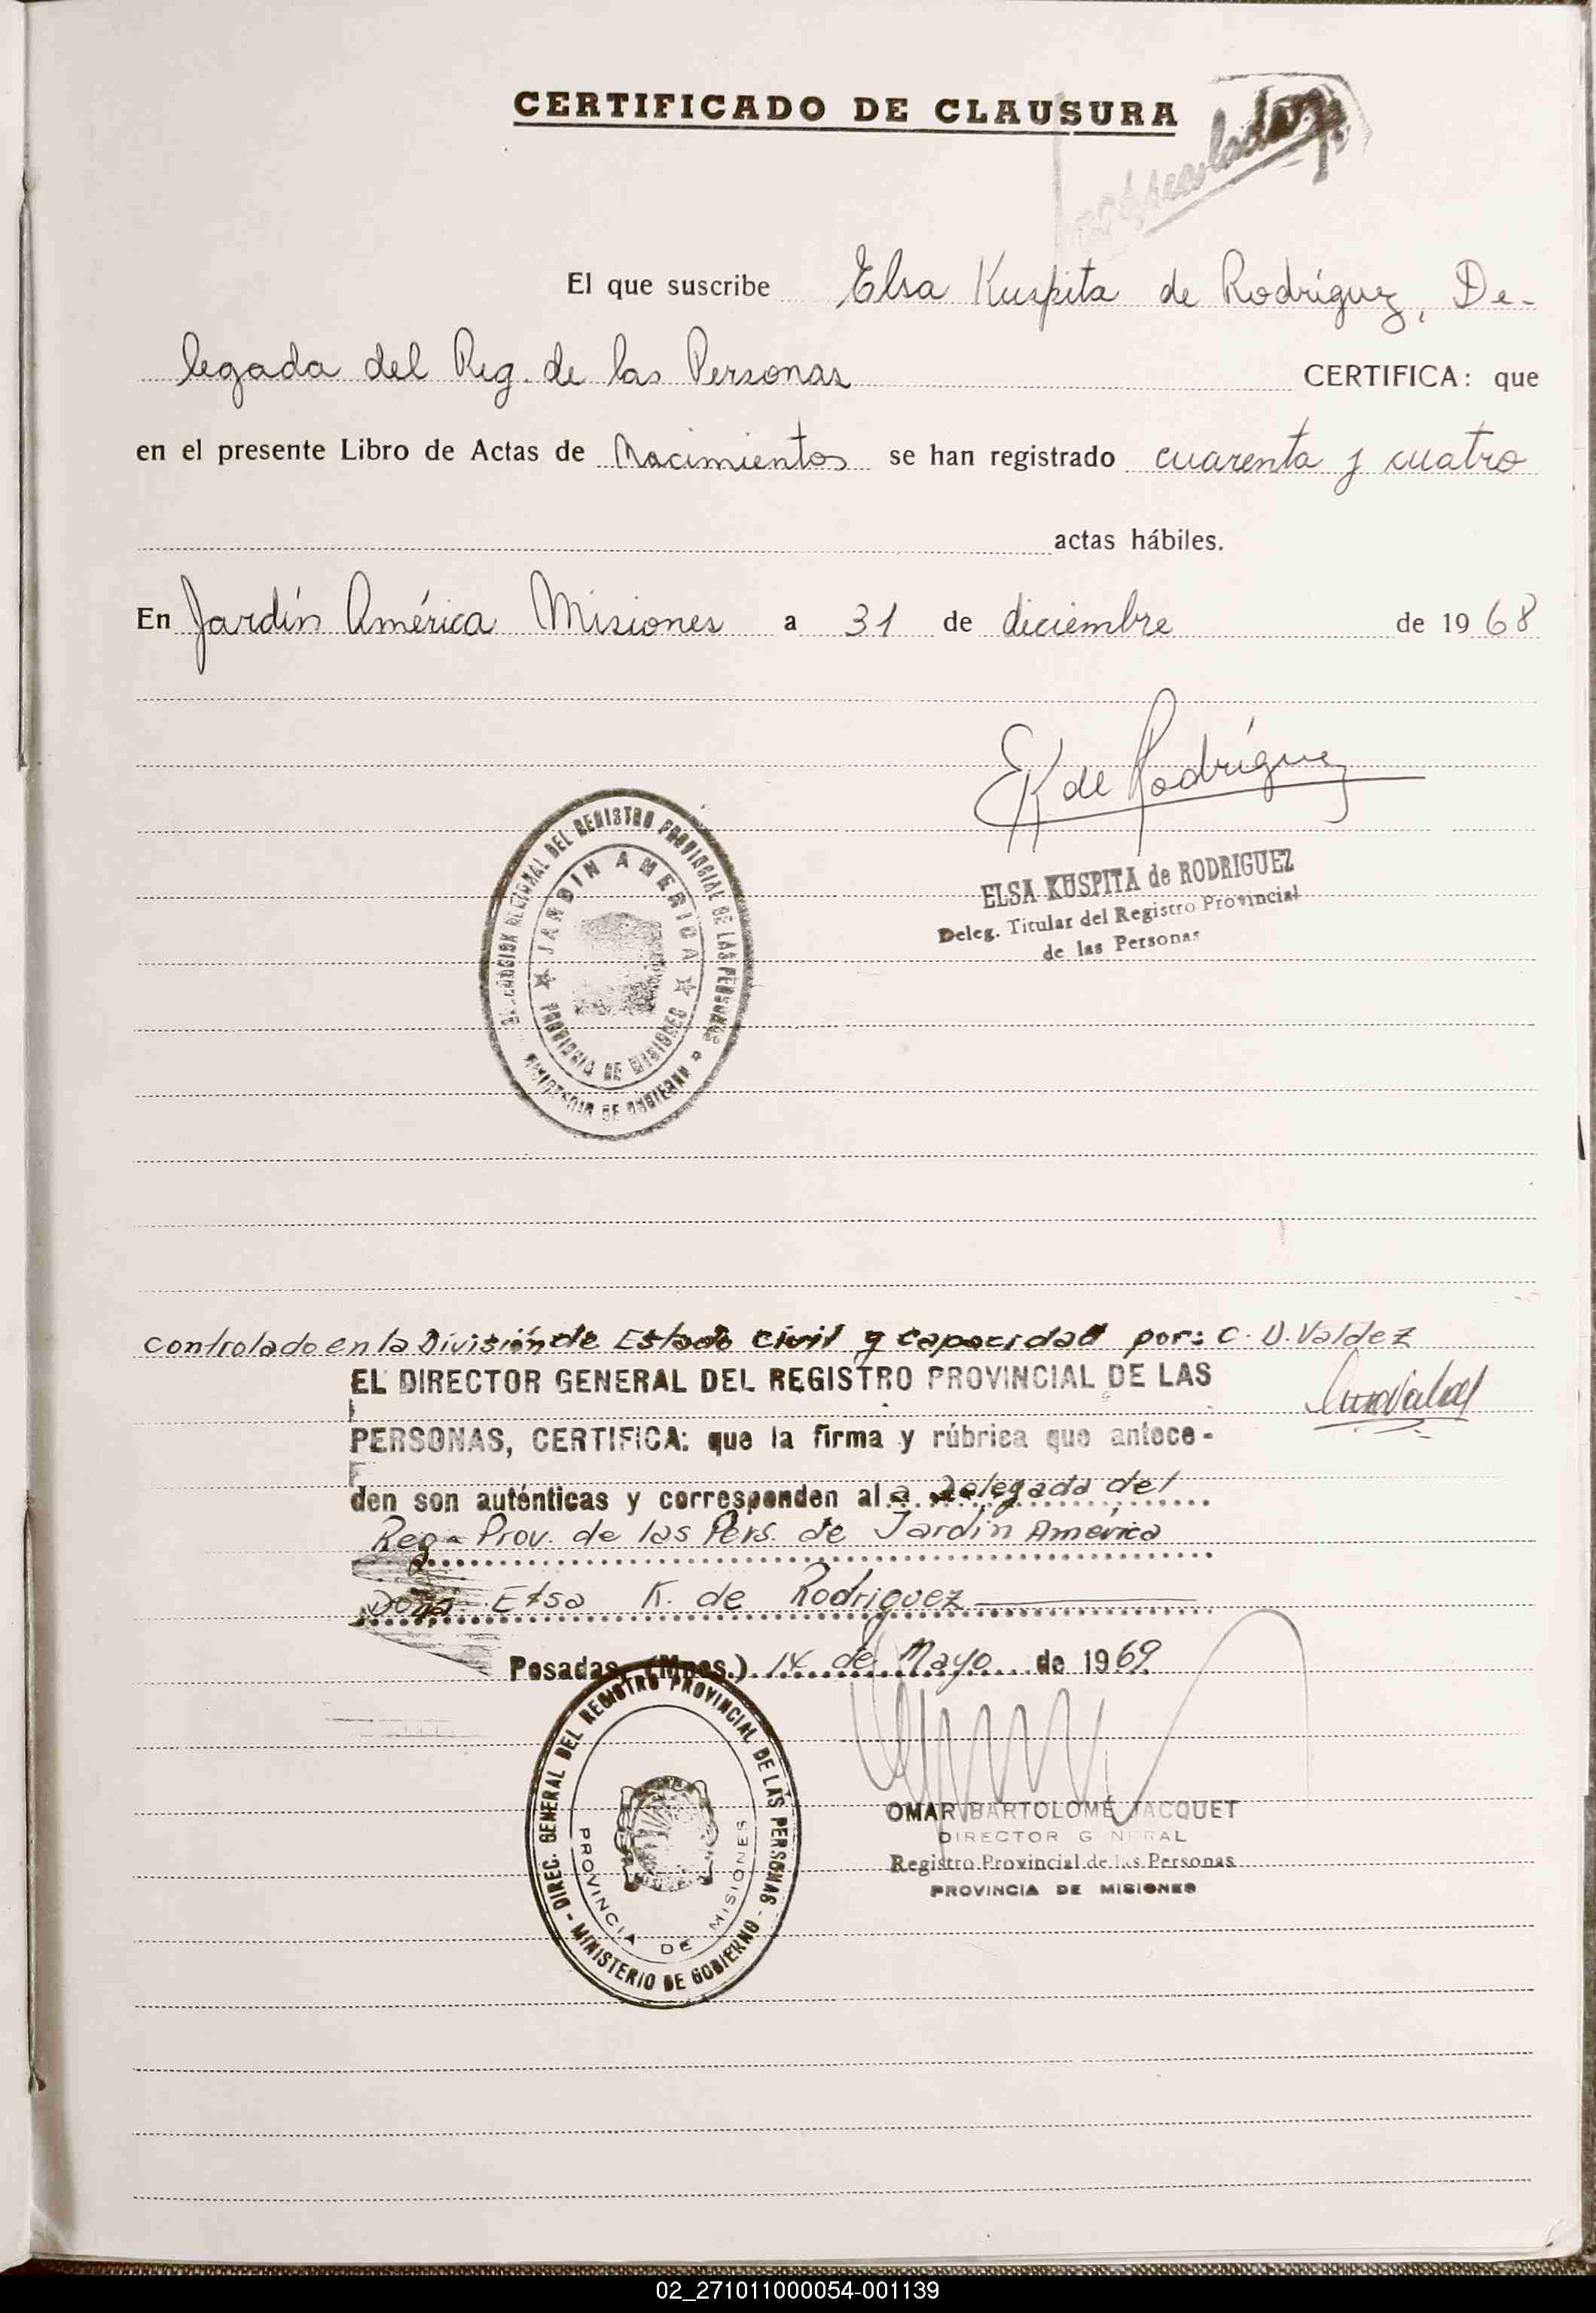 CERTIFICADO DE CLAUSURA
El que suscribe Elsa Kuspita de Rodríguez, De-
legada del Reg. de las Personas CERTIFICA: que
en el presente Libro de Actas de Nacimientos se han registrado cuarenta y cuatro
actas hábiles.
En Jardín América Misiones a 31 de diciembre de 1968
EK de Rodríguez
ELSA KUSPITA de RODRIGUEZ
Deleg. Titular del Registro Provincial
de las Personas
DELEGACION REGIONAL DEL REGISTRO PROVINCIAL DE LAS PERSONAS
MINISTERIO DE GOBIERNO
JARDIN AMERICA
PROVINCIA DE MISIONES
controlado en la División de Estado Civil y Capacidad por: C. D. Valdez
EL DIRECTOR GENERAL DEL REGISTRO PROVINCIAL DE LAS
PERSONAS, CERTIFICA: que la firma y rúbrica que antece-
den son auténticas y corresponden al a Delegada del
Reg- Prov. de las Pers. de Jardín América
Doña Elsa K. de Rodriguez
Posadas, (Mnes.) 14 de Mayo de 1969
DIREC. GENERAL DEL REGISTRO PROVINCIAL DE LAS PERSONAS - MINISTERIO DE GOBIERNO -
PROVINCIA DE MISIONES
OMAR BARTOLOME JACQUET
DIRECTOR GENERAL
Registro Provincial de las Personas
PROVINCIA DE MISIONES
02_271011000054-001139